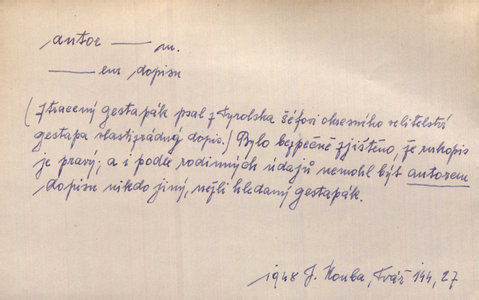 autor — m.
— em dopisu
(Ztracený gestapák psal z Tyrolska šéfovi okresního velitelství
gestapa vlastizrádný dopis.) Bylo bezpečně zjištěno, že rukopis
je pravý, a i podle rodinných údajů nemohl být autorem
dopisu nikdo jiný, nežli hledaný gestapák.
1948 J. Kouba, Tvář 144, 27